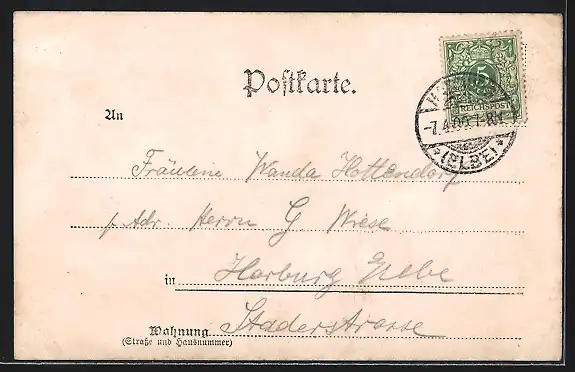 Postkarte.
5
REICHSPOST
-7.4.00.7-8V.
*(ELBE)*
An
Fräulein Wanda Hottendorf
p. Adr. Herrn G Wiese
in Harburg Elbe
Wohnung Staderstrasse
(Straße und Hausnummer)